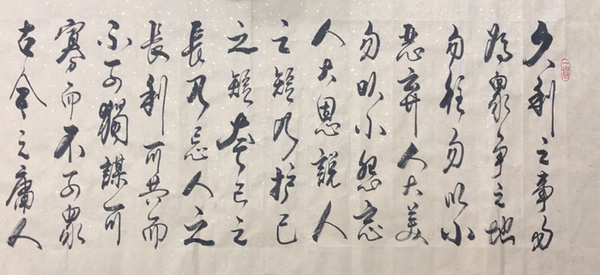 久利之事勿
為眾爭之地
勿往勿以小
惡弃人大美
勿以小怨忘
人大恩說人
之短乃护己
之短夸己之
長乃忌人之
長利可共而
不可獨謀可
寡而不可眾
古今之庸人